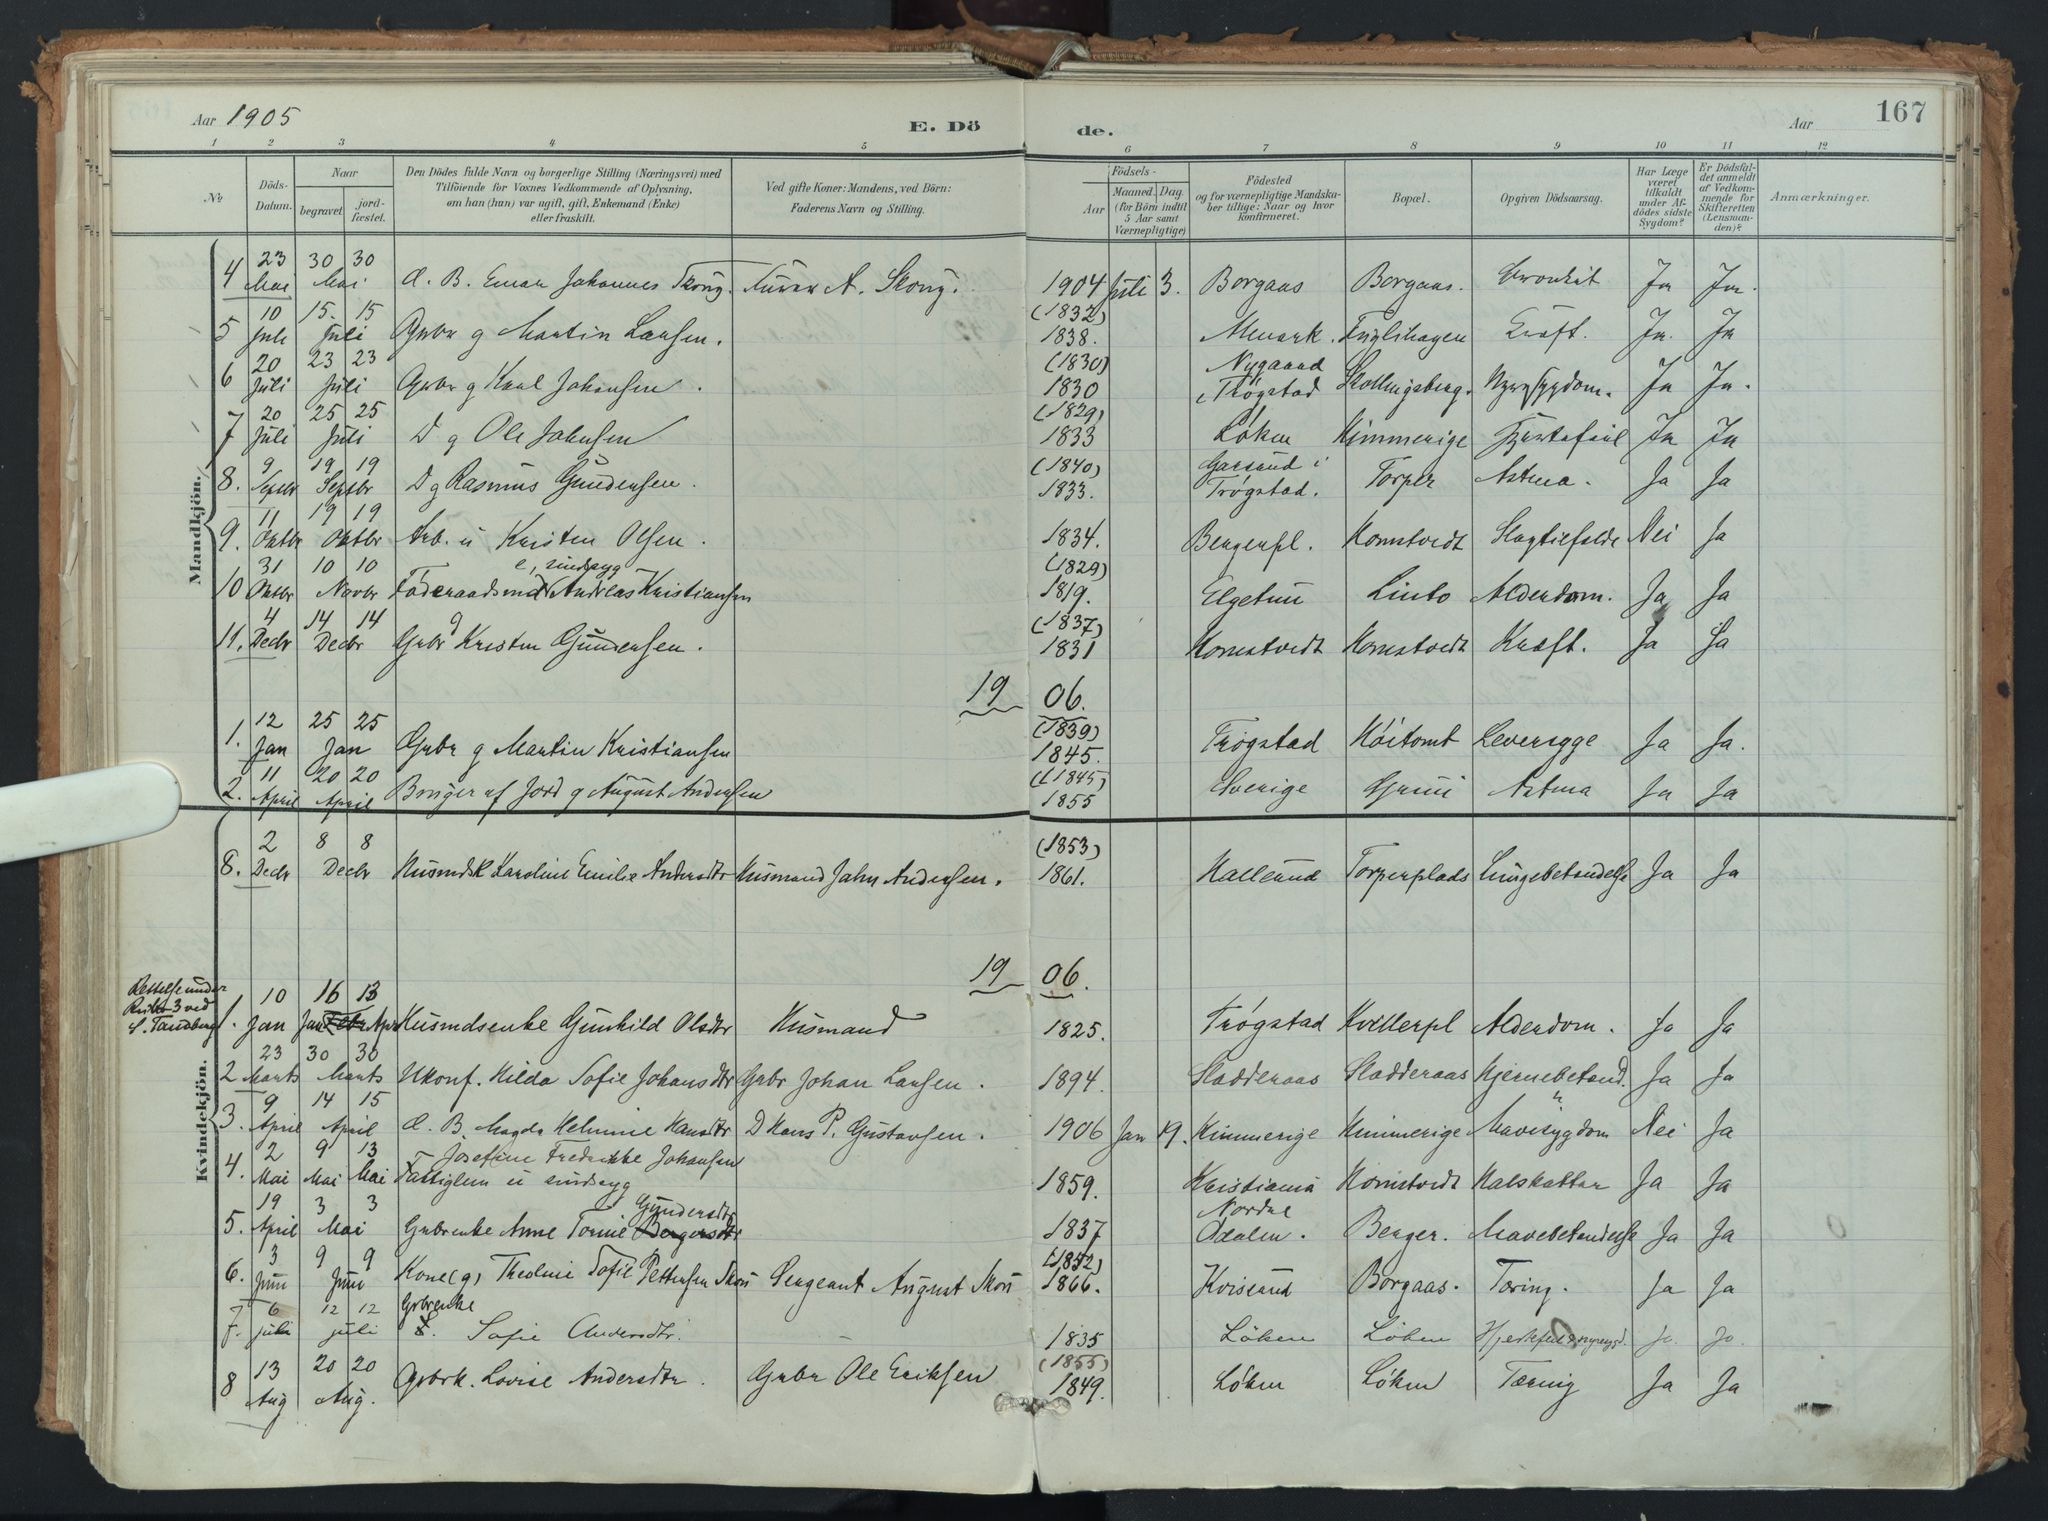 Aar 1905
E. Döde.
Aar
167
1 2 3 4 5 6 7 8 9 10 11 12
No
Döds-Datum.
Naar
begravet
jord-fæstet.
Den Dödes fulde Navn og borgerlige Stilling (Næringsvei) med
Tilföiende for Voxnes Vedkommende af Oplysning,
om han (hun) var ugift, gift, Enkemand (Enke)
eller fraskilt.
Ved gifte Koner: Mandens, ved Börn:
Faderens Navn og Stilling.
Födsels-
Aar
Maaned. Dag.
(for Börn indtil
5 Aar samt
Værnepligtige)
Födested
og for værnepligtige Mandska-
ber tillige: Naar og hvor
konfirmeret.
Bopæl.
Opgiven Dödsaarsag.
Har Læge
været
tilkaldt
under Af-
dödes sidste
Sygdom?
Er Dödsfal-
det anmeldt
af Vedkom-
mende for
Skifteretten
(Lensman-
den)?
Anmærkninger.
Mandkjön.
4 23 Mai 30 Mai 30 A. B. Einar Johannes Skoug. A. Skoug. 1904 Juli 3. Borgaas Borgaas. Bronkit Ja Ja.
5 10 Juli 15. Juli 15 Gbr g Martin Larsen. (1832) 1838. Fuglihagen Kræft. Ja. Ja
6 20 Juli 23 Juli 23 Gbr g Karl Johansen. (1830) 1830 Nygaard i Trøgstad Skollingsberg. Nyresygdom. Ja Ja.
7 20 Juli 25 Juli 25 D g Ole Johnsen (1829) 1833 Løken Himmerige Hjertefeil Ja Ja
8. 9 Septbr 19 Septbr 19 D g Rasmus Gundersen. (1840) 1833. i Trøgstad. Torper Astma. Ja Ja
9. 11 Oktbr 19 Oktbr 19 Arb. u Kristen Olsen. 1834. Bergerpl. Homstvedt Slagtilfelde Nei Ja
10 31 Oktbr 10 Novbr 10 Føderaadsmd e, sindsyg Andreas Kristiansen (1829) 1819. Elgetun Linto Alderdom. Ja Ja
11. 4 Decbr 14 Decbr 14 Gbr g Kristen Gundersen. (1837) 1831 Homstvedt Homstvedt Kræft. Ja Ja
1906.
1. 12 Jan 25 Jan 25 Gbr g Martin Kristiansen (1839) 1845. Trøgstad Høitomt Leversyge Ja Ja.
2. 11 April 20 April 20 Bruger af Jord g August Andersen (1845) 1855 Sverige Grui Astma Ja Ja
Kvindekjön.
8. 2 Decbr 8 Decbr 8 Husmdsk Karoline Emilie Andersdtr Husmand John Andersen. (1853) 1861. Hallerud Torperplads Lungebetændelse Ja Ja
1906.
Rettelse under Rubr 3 ved S. Tandberg
1. 10 Jan 16 Jan 13 Febr Apr Husmdsenke Gunhild Olsdtr Husmand 1825. Trøgstad Kvillerpl Alderdom. Ja Ja
2 23 Marts 30 Marts 30 Ukonf. Hilda Sofie Johansdtr Gbr Johan Larsen. 1894. Sladderaas Sladderaas Hjernebetænd. Ja Ja
3. 9 April 14 April 15 A. B. Magda Helmine Hansdtr D Hans P. Gustavsen. 1906 Jan 19. Himmerige Himmerige Mavesygdom Nei Ja
4. 2 Mai 9 Mai 13 Mai Josefine Fredrikke Johansen Fattiglem u sindsyg 1859. Kristiania Homstvedt Halskattar Ja Ja
5. 19 April 3 Mai 3 Gbrenke Anne Torine Bergersdtr Gundersdtr 1837 Nordre Odalen. Berger. Mavebetændelse Ja Ja
6. 3 Juni 9 Juni 9 Kone (g) Theoline Sofie Pettersen Skou Sergeant August Skou (1852) 1866. Kvisrud Borgaas. Tæring. Ja Ja
7. 6 juli 12 juli 12 Gbrenke Sofie Andersdtr. 1835 Løken Løken Ja. Ja.
8 13 Aug 20 Aug. 20 Gbrk. Lovise Andersdtr. Gbr Ole Eriksen (1855) 1849. Løken Løken Tæring Ja Ja